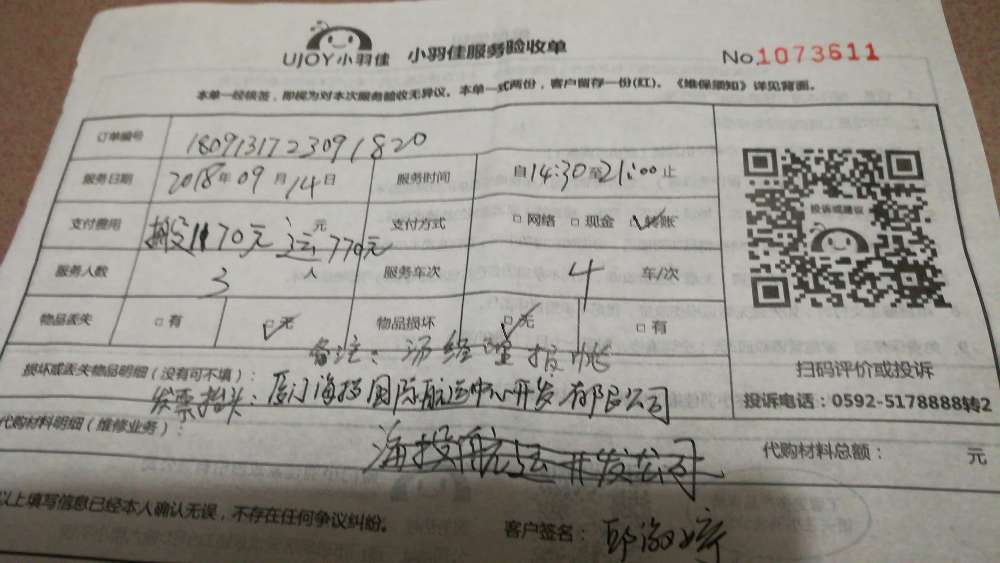 UJOY小羽佳 小羽佳服务验收单 No 1073611
本单一经核签，即视为对本次服务验收无异议。本单一式两份，客户留存一份(红)。《维保须知》详见背面。
订单编号 180913172309 1820
服务日期 2018年09月14日 服务时间 自14:30至21:00止
支付费用 搬1170元 运770元 元 支付方式 □网络 □现金 ☑转账
服务人数 3人 服务车次 4 车/次
物品丢失 □有 ☑无 物品损坏 ☑无 □有
投诉或建议
扫码评价或投诉
投诉电话：0592-5178888转2
备注：汤经理
损坏或丢失物品明细（没有可不填）：
发票抬头：厦门海投国际航运中心开发有限公司
代购材料明细（维修业务）： 代购材料总额： 元
海投航运开发公司
以上填写信息已经本人确认无误，不存在任何争议纠纷。
客户签名：邱